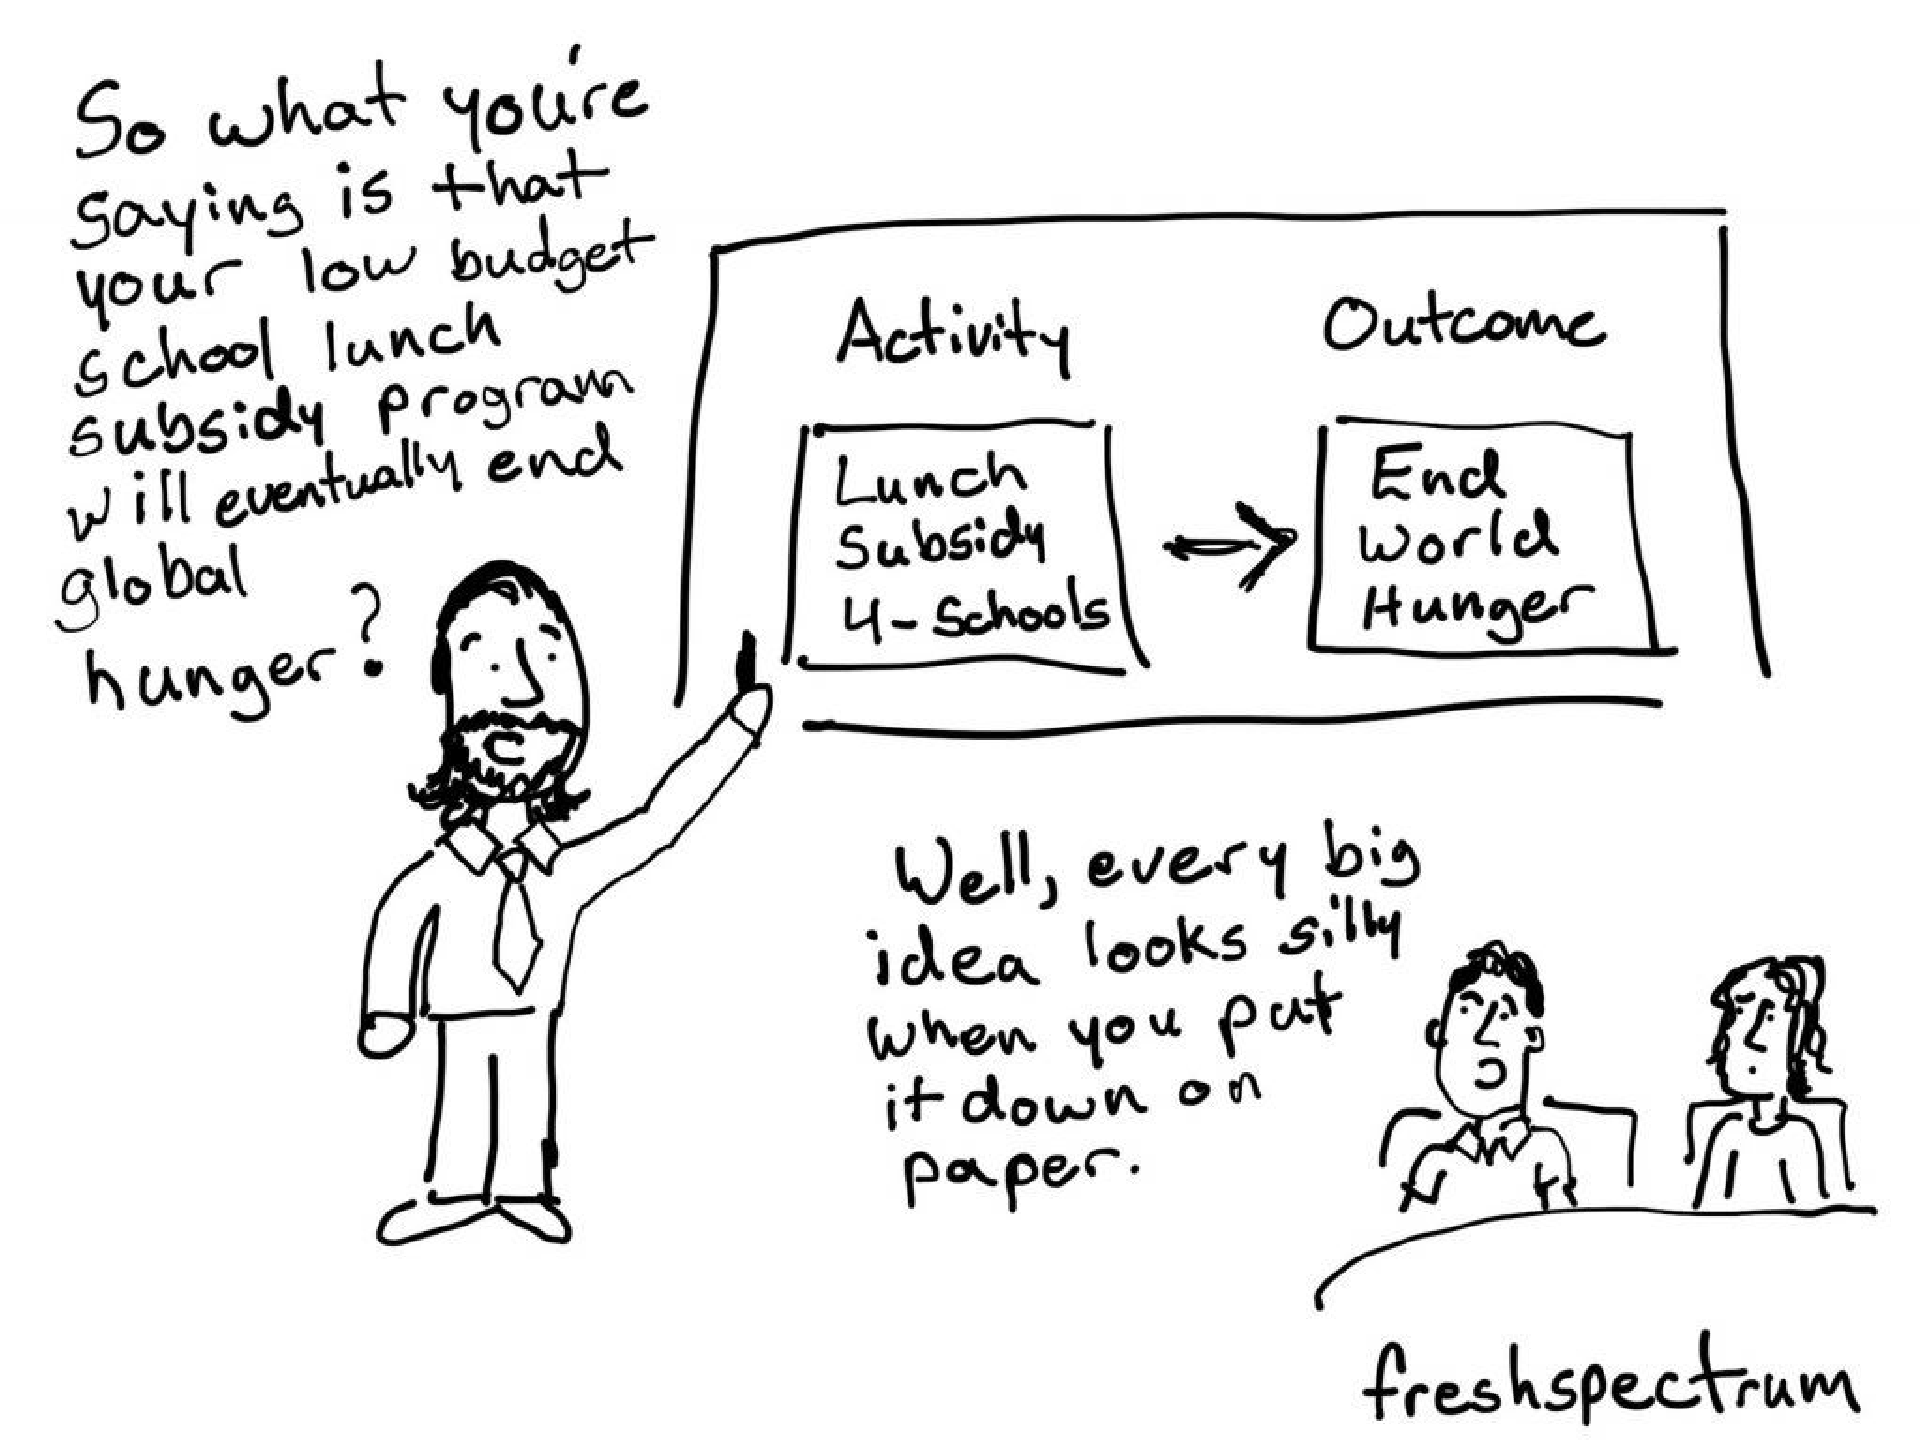 So what you're
saying is that
your low budget
school lunch
subsidy program
will eventually end
global
hunger?
Activity
Outcome
Lunch
Subsidy
4-Schools
End
World
Hunger
Well, every big
idea looks silly
when you put
it down on
paper.
freshspectrum